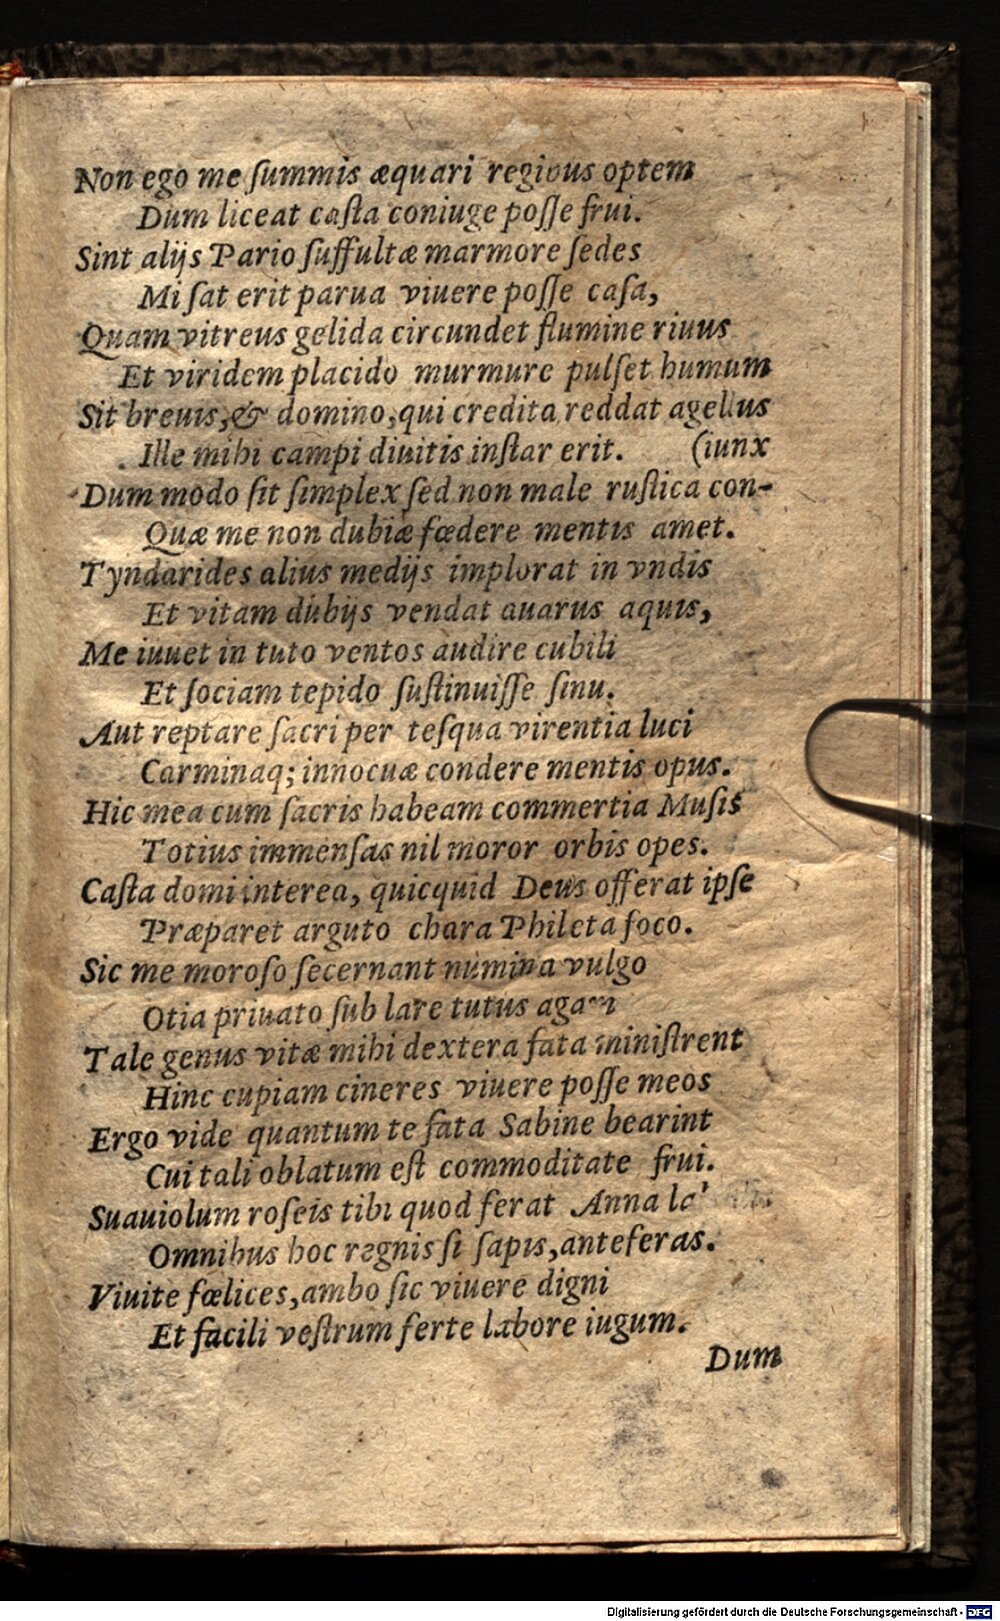 Non ego me ſummis æquari regibus optem
Dum liceat caſta coniuge poſſe frui.
Sint alijs Pario ſuffultæ marmore ſedes
Mi ſat erit parua viuere poſſe caſa,
Quam vitreus gelida circundet flumine riuus
Et viridem placido murmure pulſet humum
Sit breuis, & domino, qui credita reddat agellus
Ille mihi campi diuitis inſtar erit. (iunx
Dum modo ſit ſimplex ſed non male ruſtica con-
Quæ me non dubiæ fœdere mentis amet.
Tyndarides alius medijs implorat in vndis
Et vitam dubijs vendat auarus aquis,
Me iuuet in tuto ventos audire cubili
Et ſociam tepido ſuſtinuiſſe ſinu.
Aut reptare ſacri per teſqua virentia luci
Carminaq; innocuæ condere mentis opus.
Hic mea cum ſacris habeam commertia Muſis
Totius immenſas nil moror orbis opes.
Caſta domi interea, quicquid Deus offerat ipſe
Præparet arguto chara Phileta foco.
Sic me moroſo ſecernant numina vulgo
Otia priuato ſub lare tutus agam
Tale genus vitæ mihi dextera fata miniſtrent
Hinc cupiam cineres viuere poſſe meos
Ergo vide quantum te fata Sabine bearint
Cui tali oblatum eſt commoditate frui.
Suauiolum roſeis tibi quod ferat Anna
Omnibus hoc regnis ſi ſapis, anteferas.
Viuite fœlices, ambo ſic viuere digni
Et facili veſtrum ferte labore iugum.
Dum
Digitalisierung gefördert durch die Deutsche Forschungsgemeinschaft - DFG